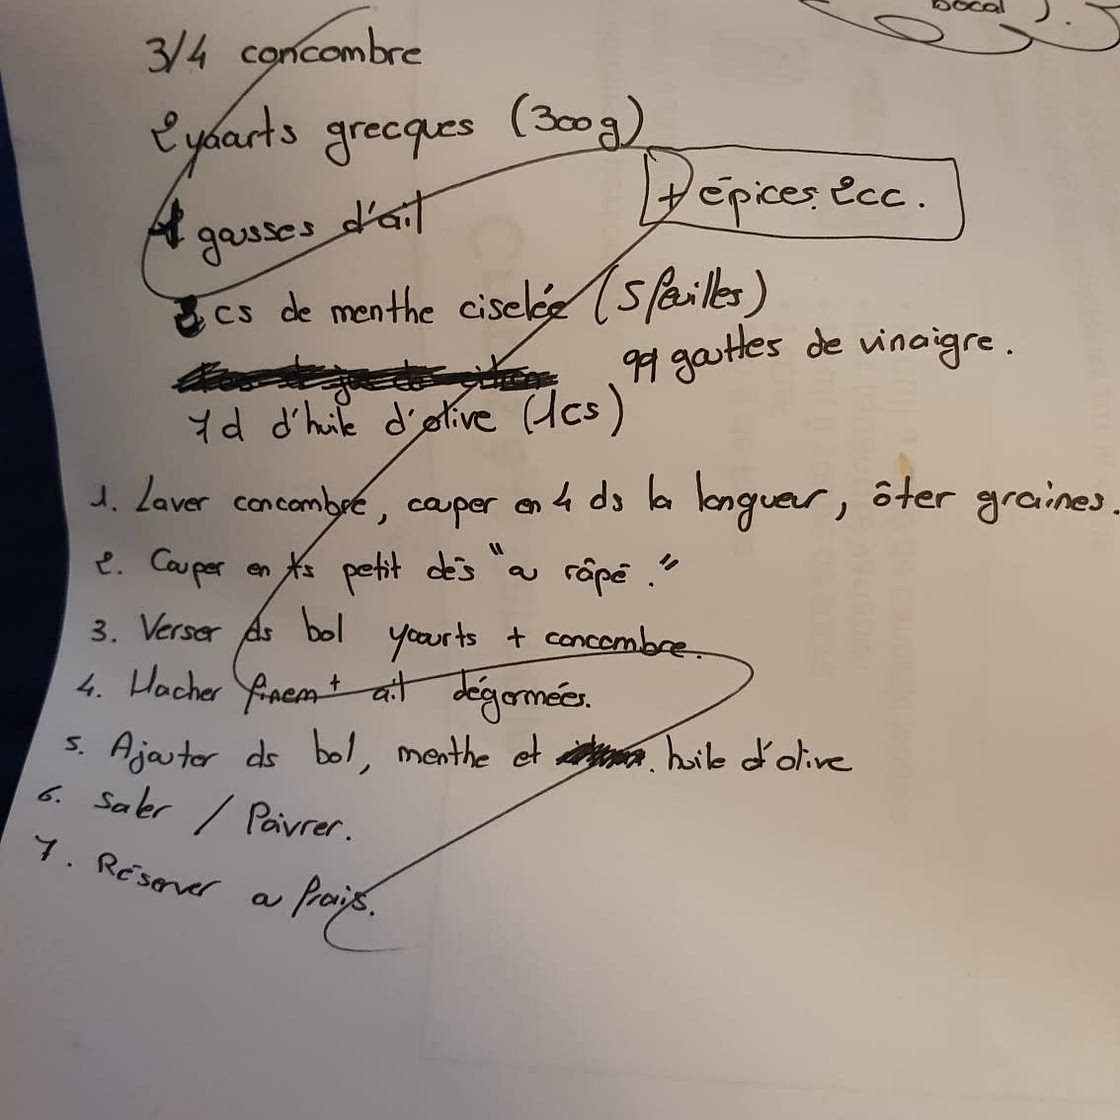 bocal ).
3/4 concombre
2 yaourts grecques (300g)
gousses d'ail
+ épices 2cc.
cs de menthe ciselée (5 feuilles)
qq gouttes de vinaigre.
1 d d'huile d'olive (1cs)
1. Laver concombre, couper en 4 ds la longueur, ôter graines.
2. Couper en ts petit dés "ou râpé."
3. Verser ds bol yaourts + concombre.
4. Hacher finem+ ail dégermées.
5. Ajouter ds bol, menthe et huile d'olive
6. Saler / Poivrer.
7. Réserver au frais.